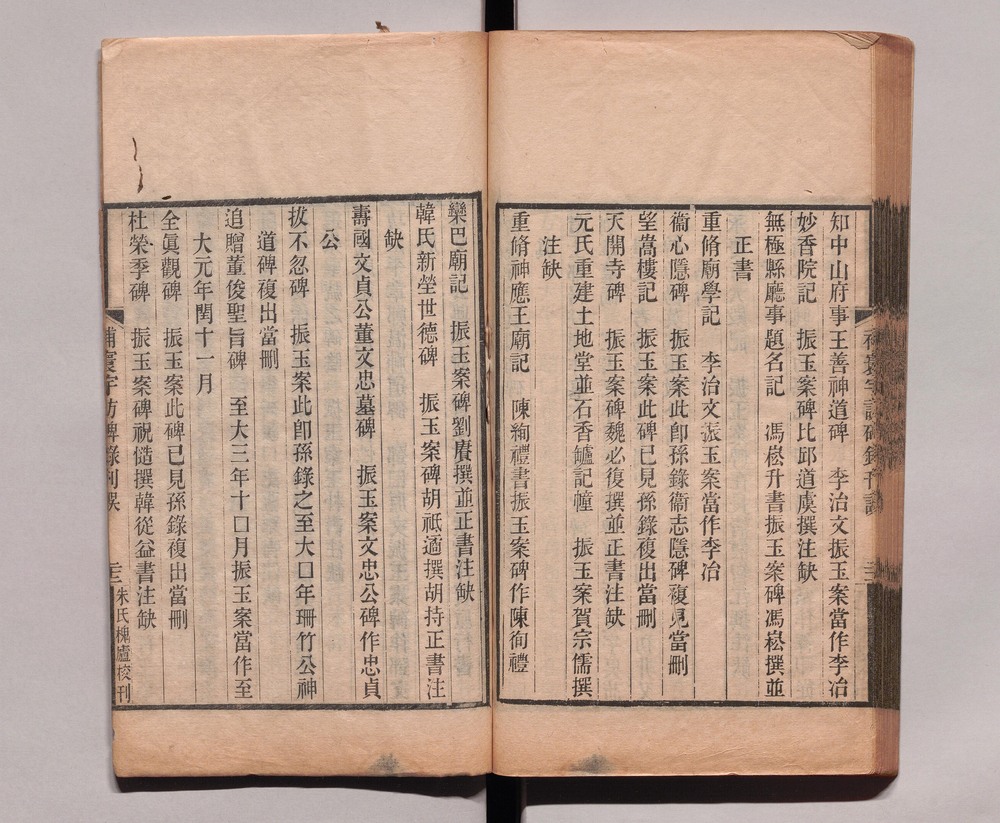 知中山府事王善神道碑　李治文振玉案當作李冶
妙香院記　振玉案碑比邱道虔撰注缺
無極縣廳事題名記　馮崧升書振玉案碑馮崧撰並
正書
重脩廟學記　李治文振玉案當作李冶
衞心隱碑　振玉案此卽孫錄衞志隱碑複見當刪
望嵩樓記　振玉案此碑已見孫錄複出當刪
天開寺碑　振玉案碑魏必復撰並正書注缺
元氏重建土地堂並石香鑪記幢　振玉案賀宗儒撰
注缺
重脩神應王廟記　陳絢禮書振玉案碑作陳徇禮
欒巴廟記　振玉案碑劉賡撰並正書注缺
韓氏新塋世德碑　振玉案碑胡祗遹撰胡持正書注
缺
壽國文貞公董文忠墓碑　振玉案文忠公碑作忠貞
公
拔不忽碑　振玉案此卽孫錄之至大口年珊竹公神
道碑複出當刪
追贈董俊聖旨碑　至大三年十口月振玉案當作至
大元年閏十一月
全眞觀碑　振玉案此碑已見孫錄複出當刪
杜榮季碑　振玉案碑祝慥撰韓從益書注缺
補寰宇訪碑錄刊誤
三
朱氏槐廬校刊